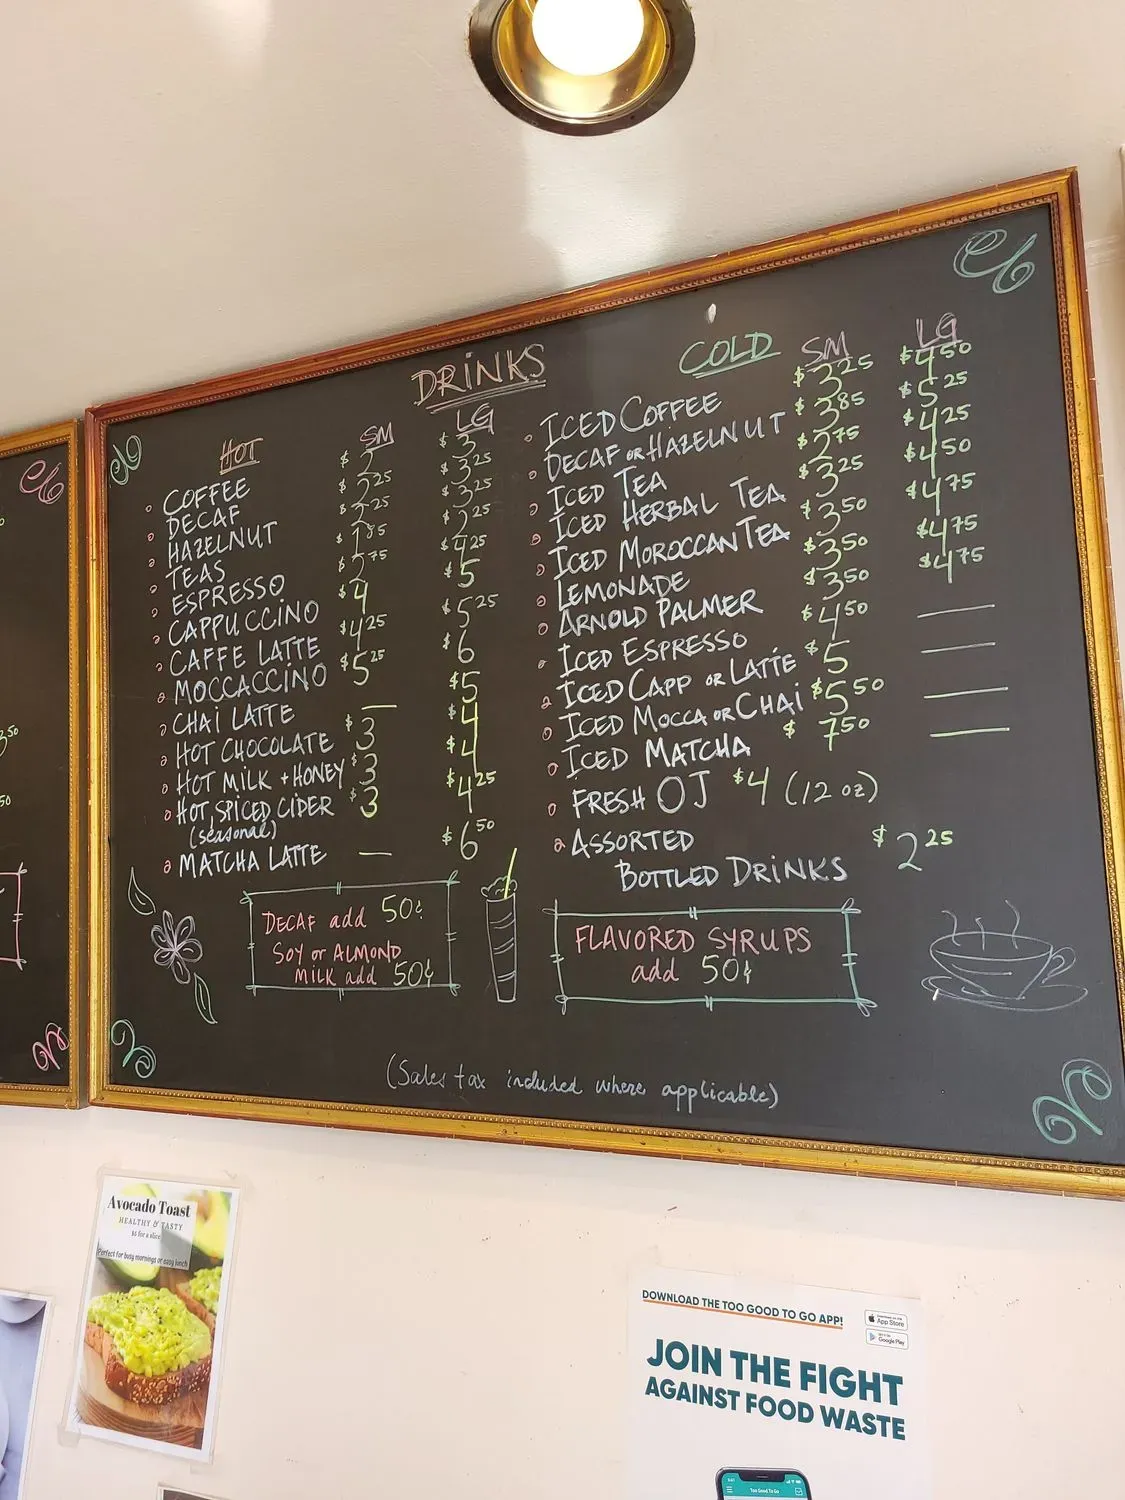 DRINKS
HOT SM LG
COFFEE $2 $3
DECAF $2.25 $3.25
HAZELNUT $2.25 $3.25
TEAS $1.85 $2.25
ESPRESSO $2.75 $4.25
CAPPUCCINO $4 $5
CAFFE LATTE $4.25 $5.25
MOCCACCINO $5.25 $6
CHAI LATTE — $5
HOT CHOCOLATE $3 $4
HOT MILK + HONEY $3 $4
HOT, SPICED CIDER $3 $4.25
(seasonal)
MATCHA LATTE — $6.50
DECAF add 50¢
SOY or ALMOND
MILK add 50¢
COLD SM LG
ICED COFFEE $3.25 $4.50
DECAF OR HAZELNUT $3.85 $5.25
ICED TEA $2.75 $4.25
ICED HERBAL TEA $3.25 $4.50
ICED MOROCCAN TEA $3.50 $4.75
LEMONADE $3.50 $4.75
ARNOLD PALMER $3.50 $4.75
ICED ESPRESSO $4.50 —
ICED CAPP OR LATTE $5 —
ICED MOCCA OR CHAI $5.50 —
ICED MATCHA $7.50 —
FRESH OJ $4 (12 oz)
ASSORTED
BOTTLED DRINKS $2.25
FLAVORED SYRUPS
add 50¢
(Sales tax included where applicable)
Avocado Toast
HEALTHY & TASTY
$6 for a slice
Perfect for busy mornings or easy lunch
DOWNLOAD THE TOO GOOD TO GO APP!
App Store
Google Play
JOIN THE FIGHT
AGAINST FOOD WASTE
Too Good To Go